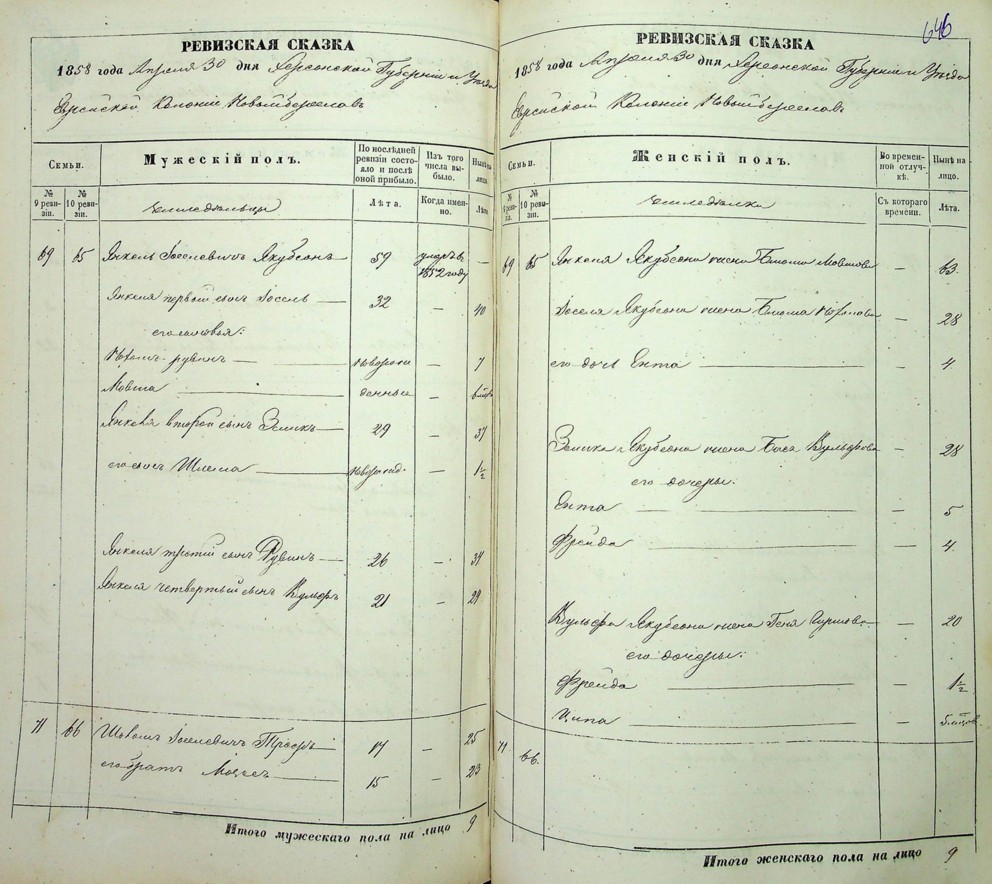 646
РЕВИЗСКАЯ СКАЗКА
1858 года Апреля 30 дня Херсонской Губерніи и Уезда
Еврейской Колоніи Новоибериславъ
Семьи.
Мужескій полъ.
По последней ревизіи состояло и послѣ оной прибыло.
Изъ того числа выбыло.
Нынѣ на лицо.
№ 9 ревизіи.
№ 10 ревизіи.
Земледельцы
Лѣта.
Когда именно.
Лѣта
69 65 Янкель Іоселевичъ Якубсонъ 59 умеръ въ 1852 году —
Янкеля первый сынъ Іосель 32 — 40
его сыновья:
рувинъ новорож — 7
Мовша денные —
Янкеля второй сынъ Зеликъ 29 — 37
его сынъ Шлема новорожд. — 1½
Янкеля третий сынъ Рувинъ 26 — 34
Янкеля четвертый сынъ Вульфъ 21 — 29
71 66 Іоселевичъ 17 — 25
его братъ 15 — 23
Итого мужескаго пола на лицо 9
РЕВИЗСКАЯ СКАЗКА
1858 года Апреля 30 дня Херсонской Губерніи и Уезда
Еврейской Колоніи Новоибериславъ
Семьи.
Женскій полъ.
Во временной отлучкѣ.
Нынѣ на лицо.
№ 9 ревизіи.
№ 10 ревизіи.
Съ котораго времени.
Лѣта.
69 65 Янкеля Якубсона жена — 63
Іоселя Якубсона жена — 28
его дочь Ента — 4
Зелика Якубсона жена Бася Вульфова — 28
его дочери:
Ента — 5
Фрейда — 4
Вульфа Якубсона жена Геня — 20
его дочери:
Фрейда — 1½
Ципа —
71 66.
Итого женскаго пола на лицо 9